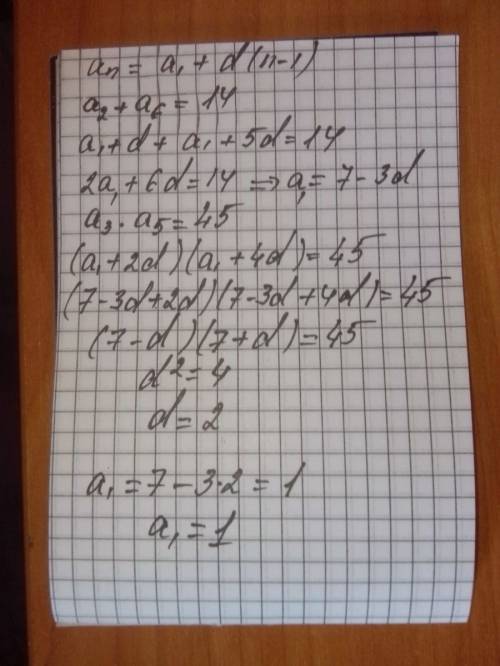 aₙ = a₁ + d(n-1)
a₂ + a₆ = 14
a₁ + d + a₁ + 5d = 14
2a₁ + 6d = 14 ⇒ a₁ = 7 - 3d
a₃ · a₅ = 45
(a₁ + 2d)(a₁ + 4d) = 45
(7 - 3d + 2d)(7 - 3d + 4d) = 45
(7 - d)(7 + d) = 45
d² = 4
d = 2
a₁ = 7 - 3·2 = 1
a₁ = 1